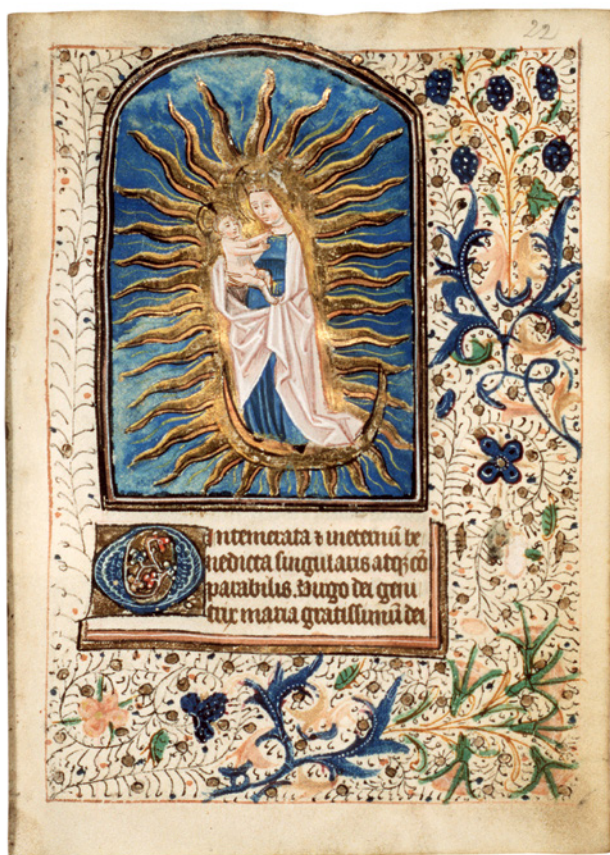 22
O Intemerata ⁊ ineternū be
nedicta singularis atqꝫ cō
parabilis. Virgo dei geni
trix maria gratissimū dei